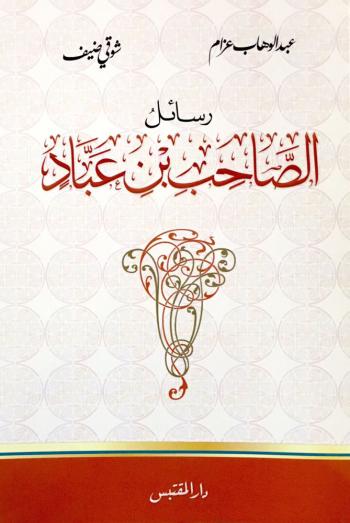 عبد الوهاب عزام شوقي ضيف
رسائلُ
الصَّاحِبِ بْنِ عَبَّادٍ
دار المقتبس